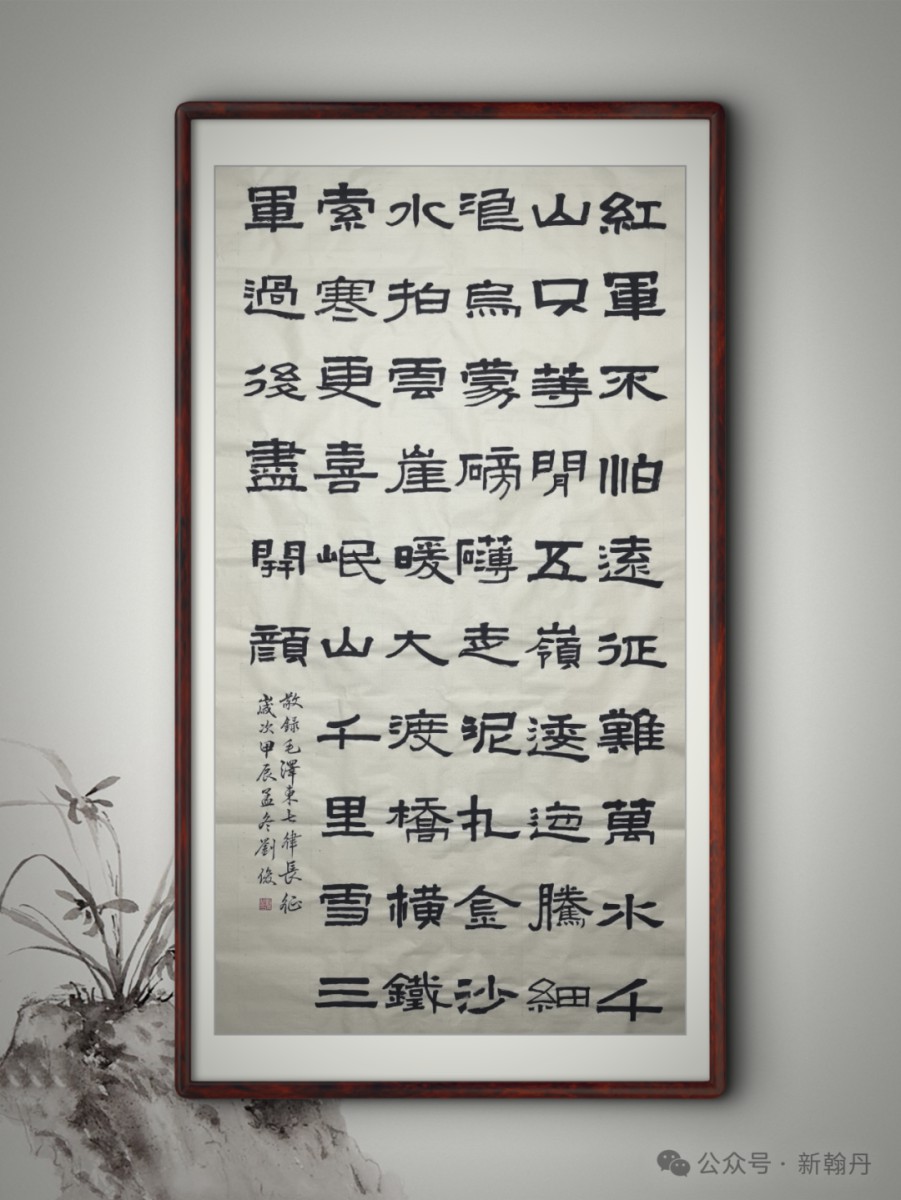 紅軍不怕遠征難萬水千
山只等閒五嶺逶迤騰細
浪烏蒙磅礴走泥丸金沙
水拍雲崖暖大渡橋橫鐵
索寒更喜岷山千里雪三
軍過後盡開顏
敬録毛澤東七律長征
歲次甲辰孟冬劉俊
公众号 · 新翰丹